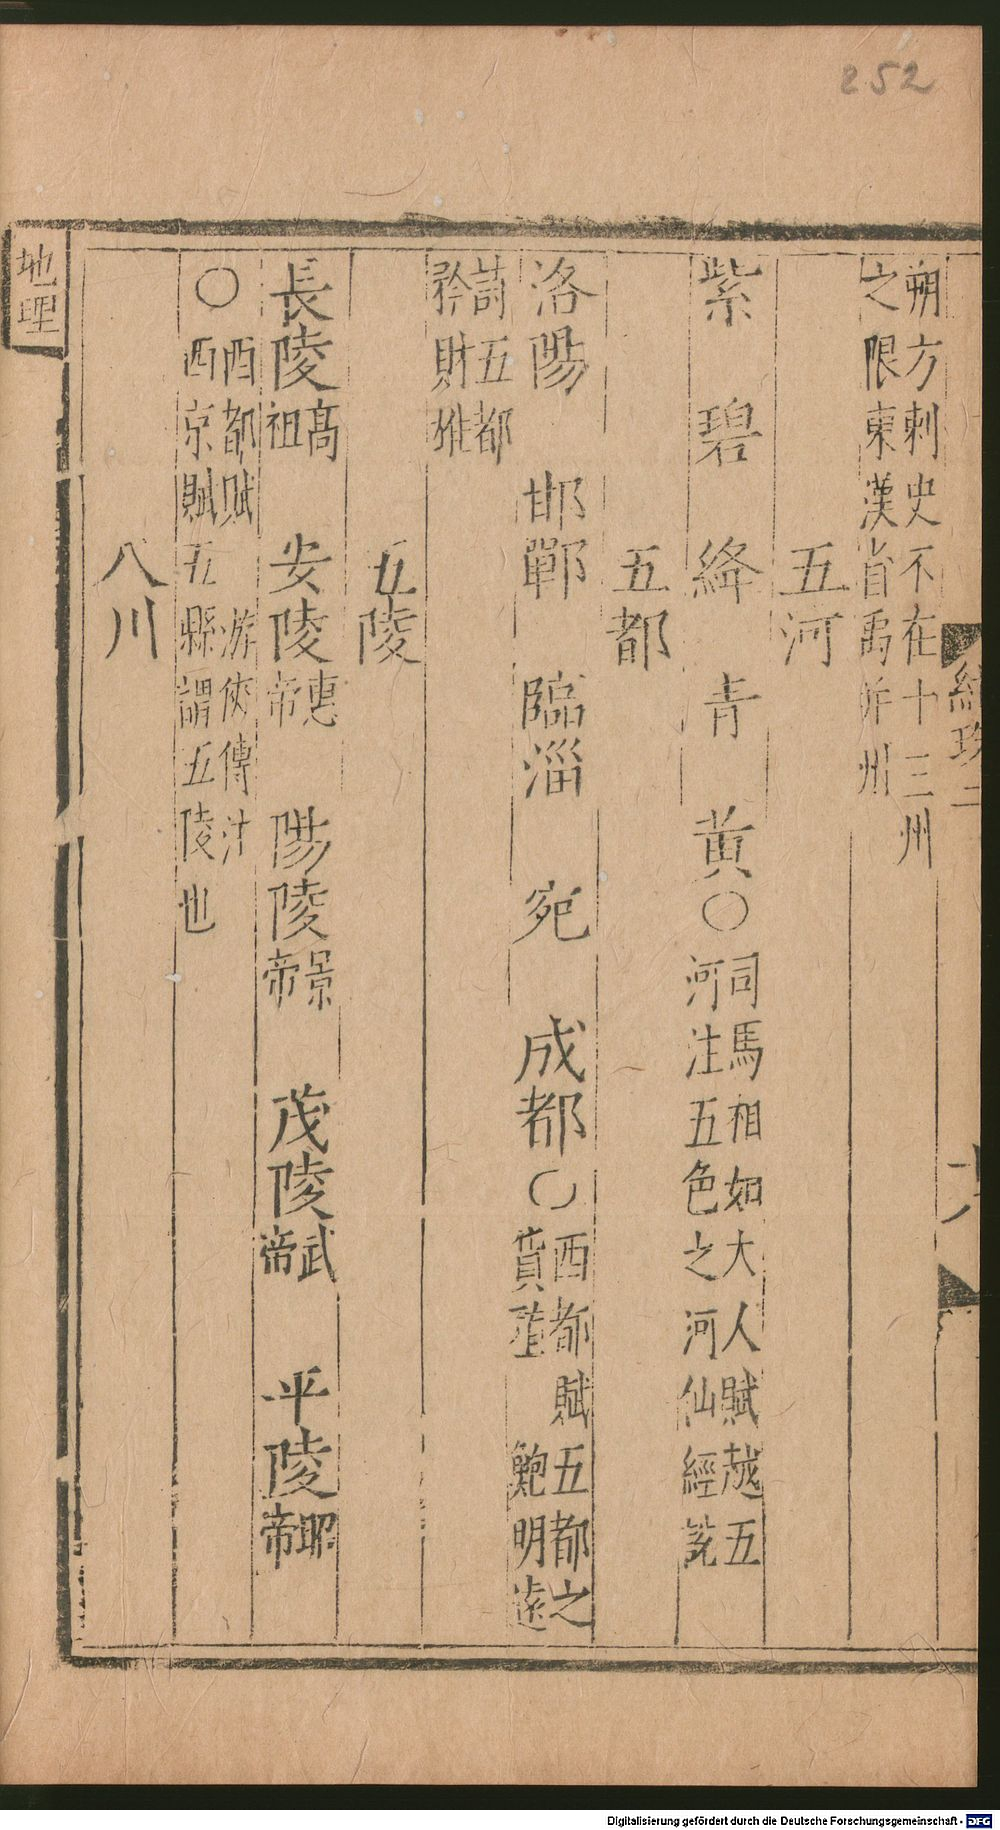 252
地理
朔方刺史不在十三州
之限東漢省禹并州
五河
紫 碧 絳 青 黄〇司馬相如大人賦越五
河注五色之河仙經説
五都
洛陽 邯鄲 臨淄 宛 成都〇西都賦五都之
貨殖 鮑明遠
詩五都
矜財雄
五陵
長陵高祖 安陵惠帝 陽陵景帝 茂陵武帝 平陵昭帝
〇西都賦 游俠傳注
西京賦五縣謂五陵也
八川
Digitalisierung gefördert durch die Deutsche Forschungsgemeinschaft - DFG